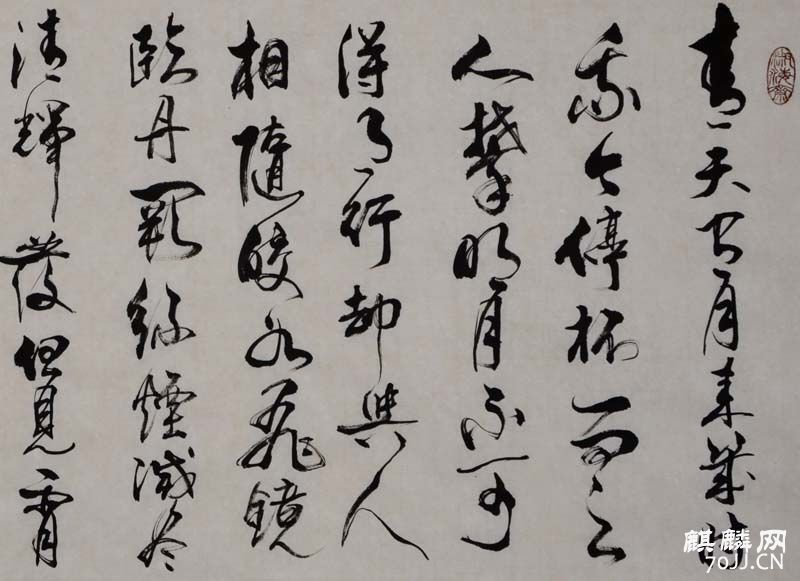 青天有月来幾時
我今停杯一問之
人攀明月不可
得月行却與人
相隨皎如飛鏡
臨丹闕緑煙滅盡
清輝發但見宵
麒麟网
70JJ.CN